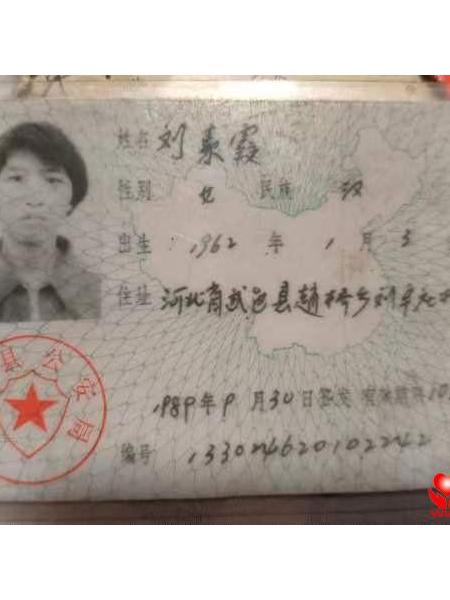 姓名 刘素霞
性别 女 民族 汉
出生 1962 年 1 月 3
住址 河北省武邑县趙桥乡刘辛庄村
县公安局
1989年9月30日签发 有效期限10
编号 133024620102242